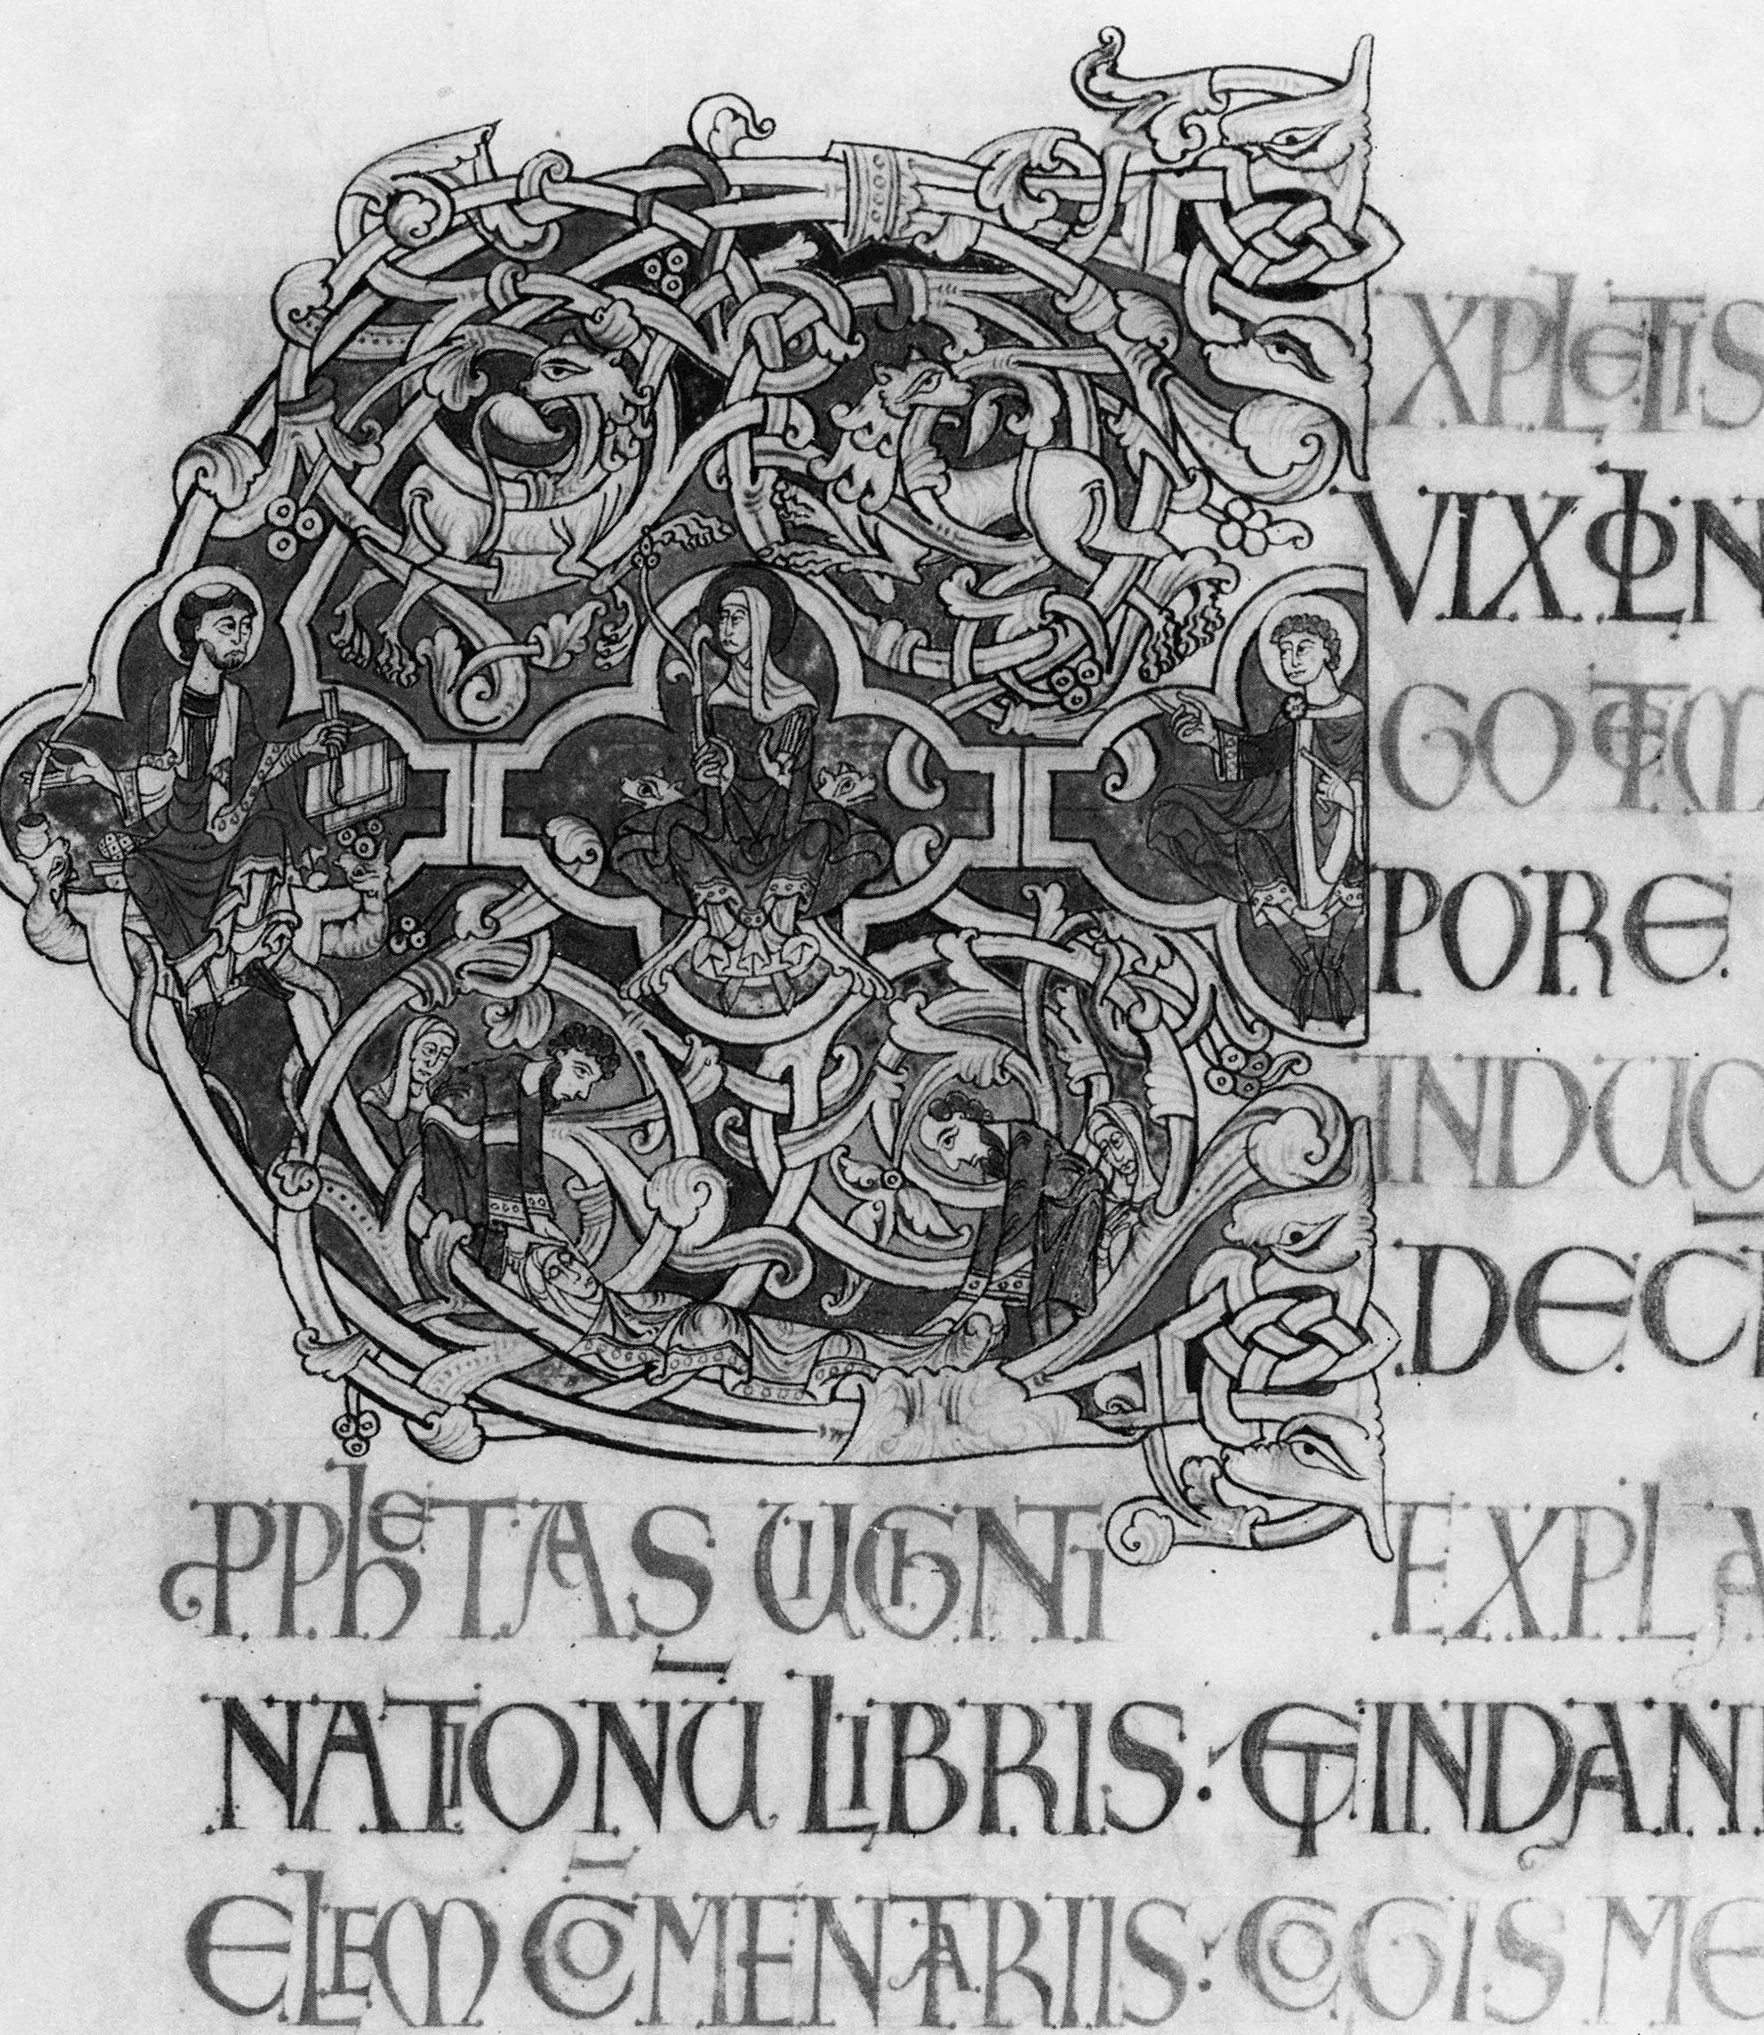 EXPLETIS
VIX LON
GO TEM
PORE
IN DUO
DECI
PPHETAS UIGINTI EXPLA
NATIONŪ LIBRIS: ET IN DANI
ELEM CŌMENTARIIS: COGIS ME